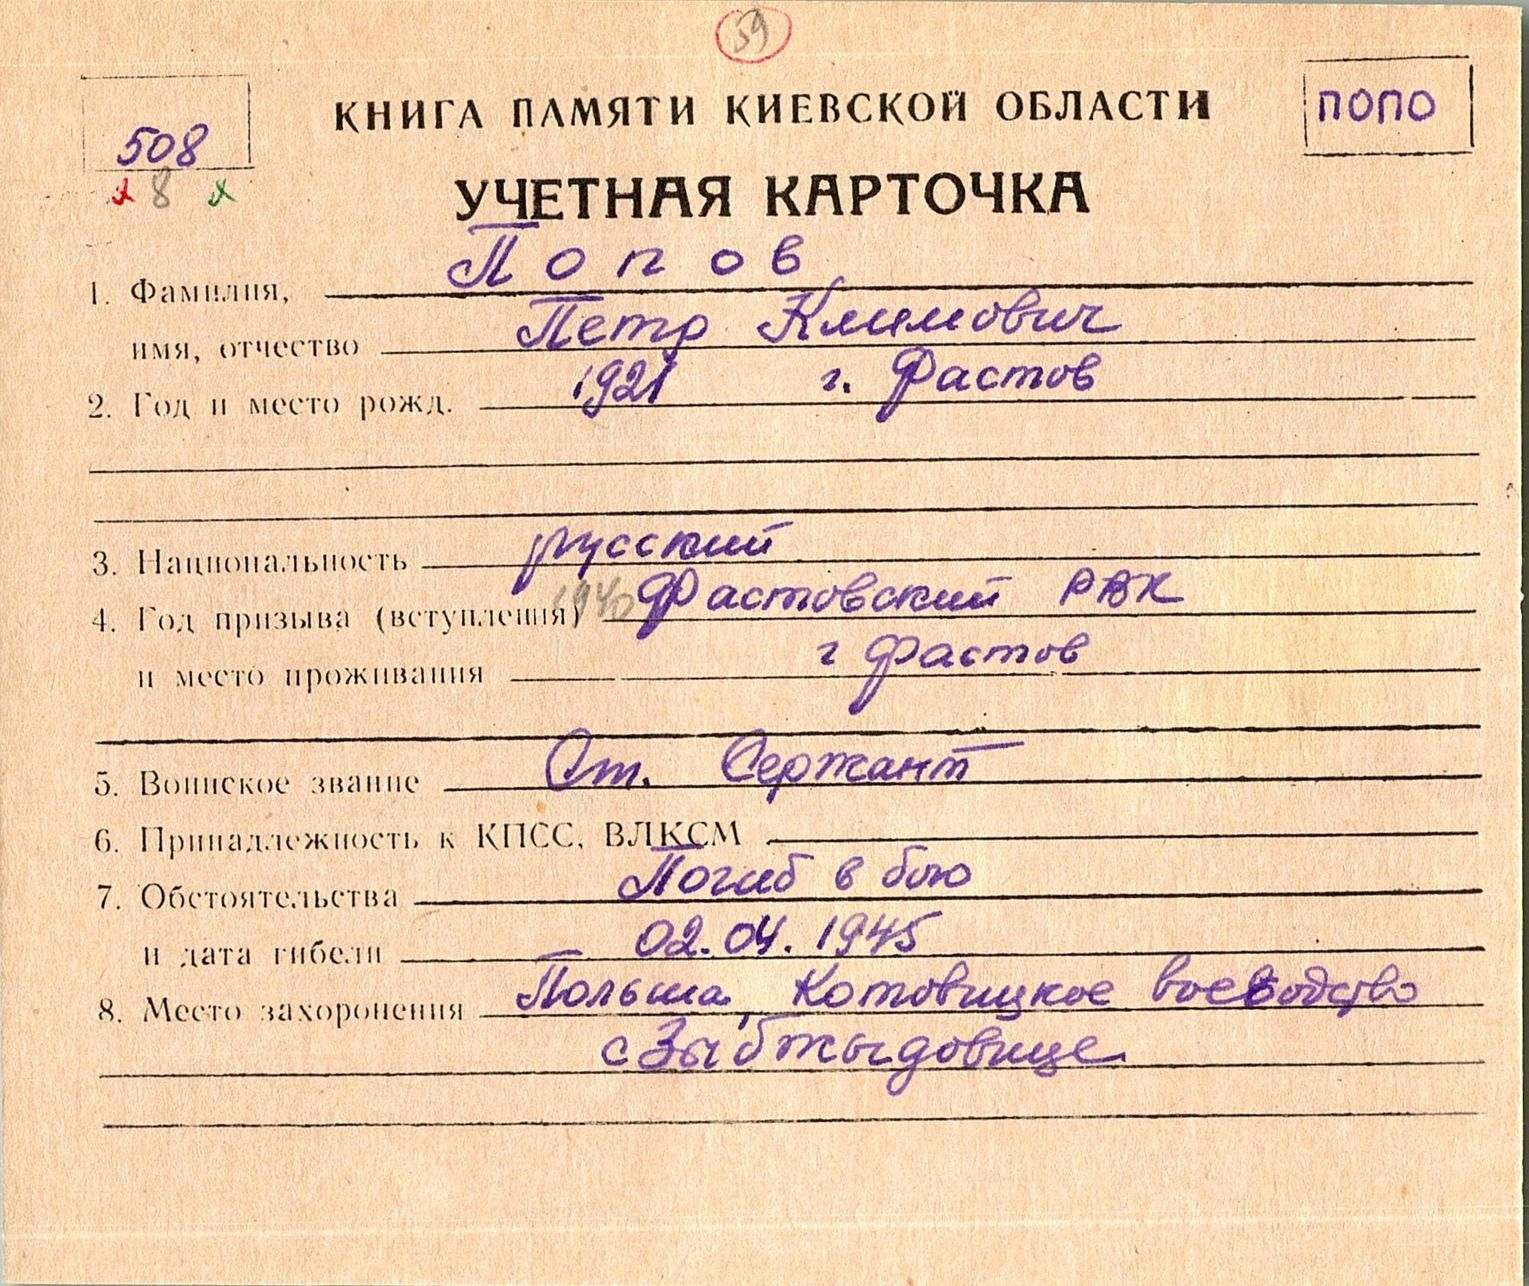 59
КНИГА ПАМЯТИ КИЕВСКОЙ ОБЛАСТИ
ПОПО
508
х 8 х
УЧЕТНАЯ КАРТОЧКА
1. Фамилия, Попов
имя, отчество Петр Климович
2. Год и место рожд. 1921 г. Фастов
3. Национальность русский
4. Год призыва (вступления) 1940 Фастовский РВК
и место проживания г Фастов
5. Воинское звание Ст. Сержант
6. Принадлежность к КПСС, ВЛКСМ
7. Обстоятельства Погиб в бою
и дата гибели 02.04.1945
8. Место захоронения Польша, Котовицкое воеводство
с Зыбжыдовице